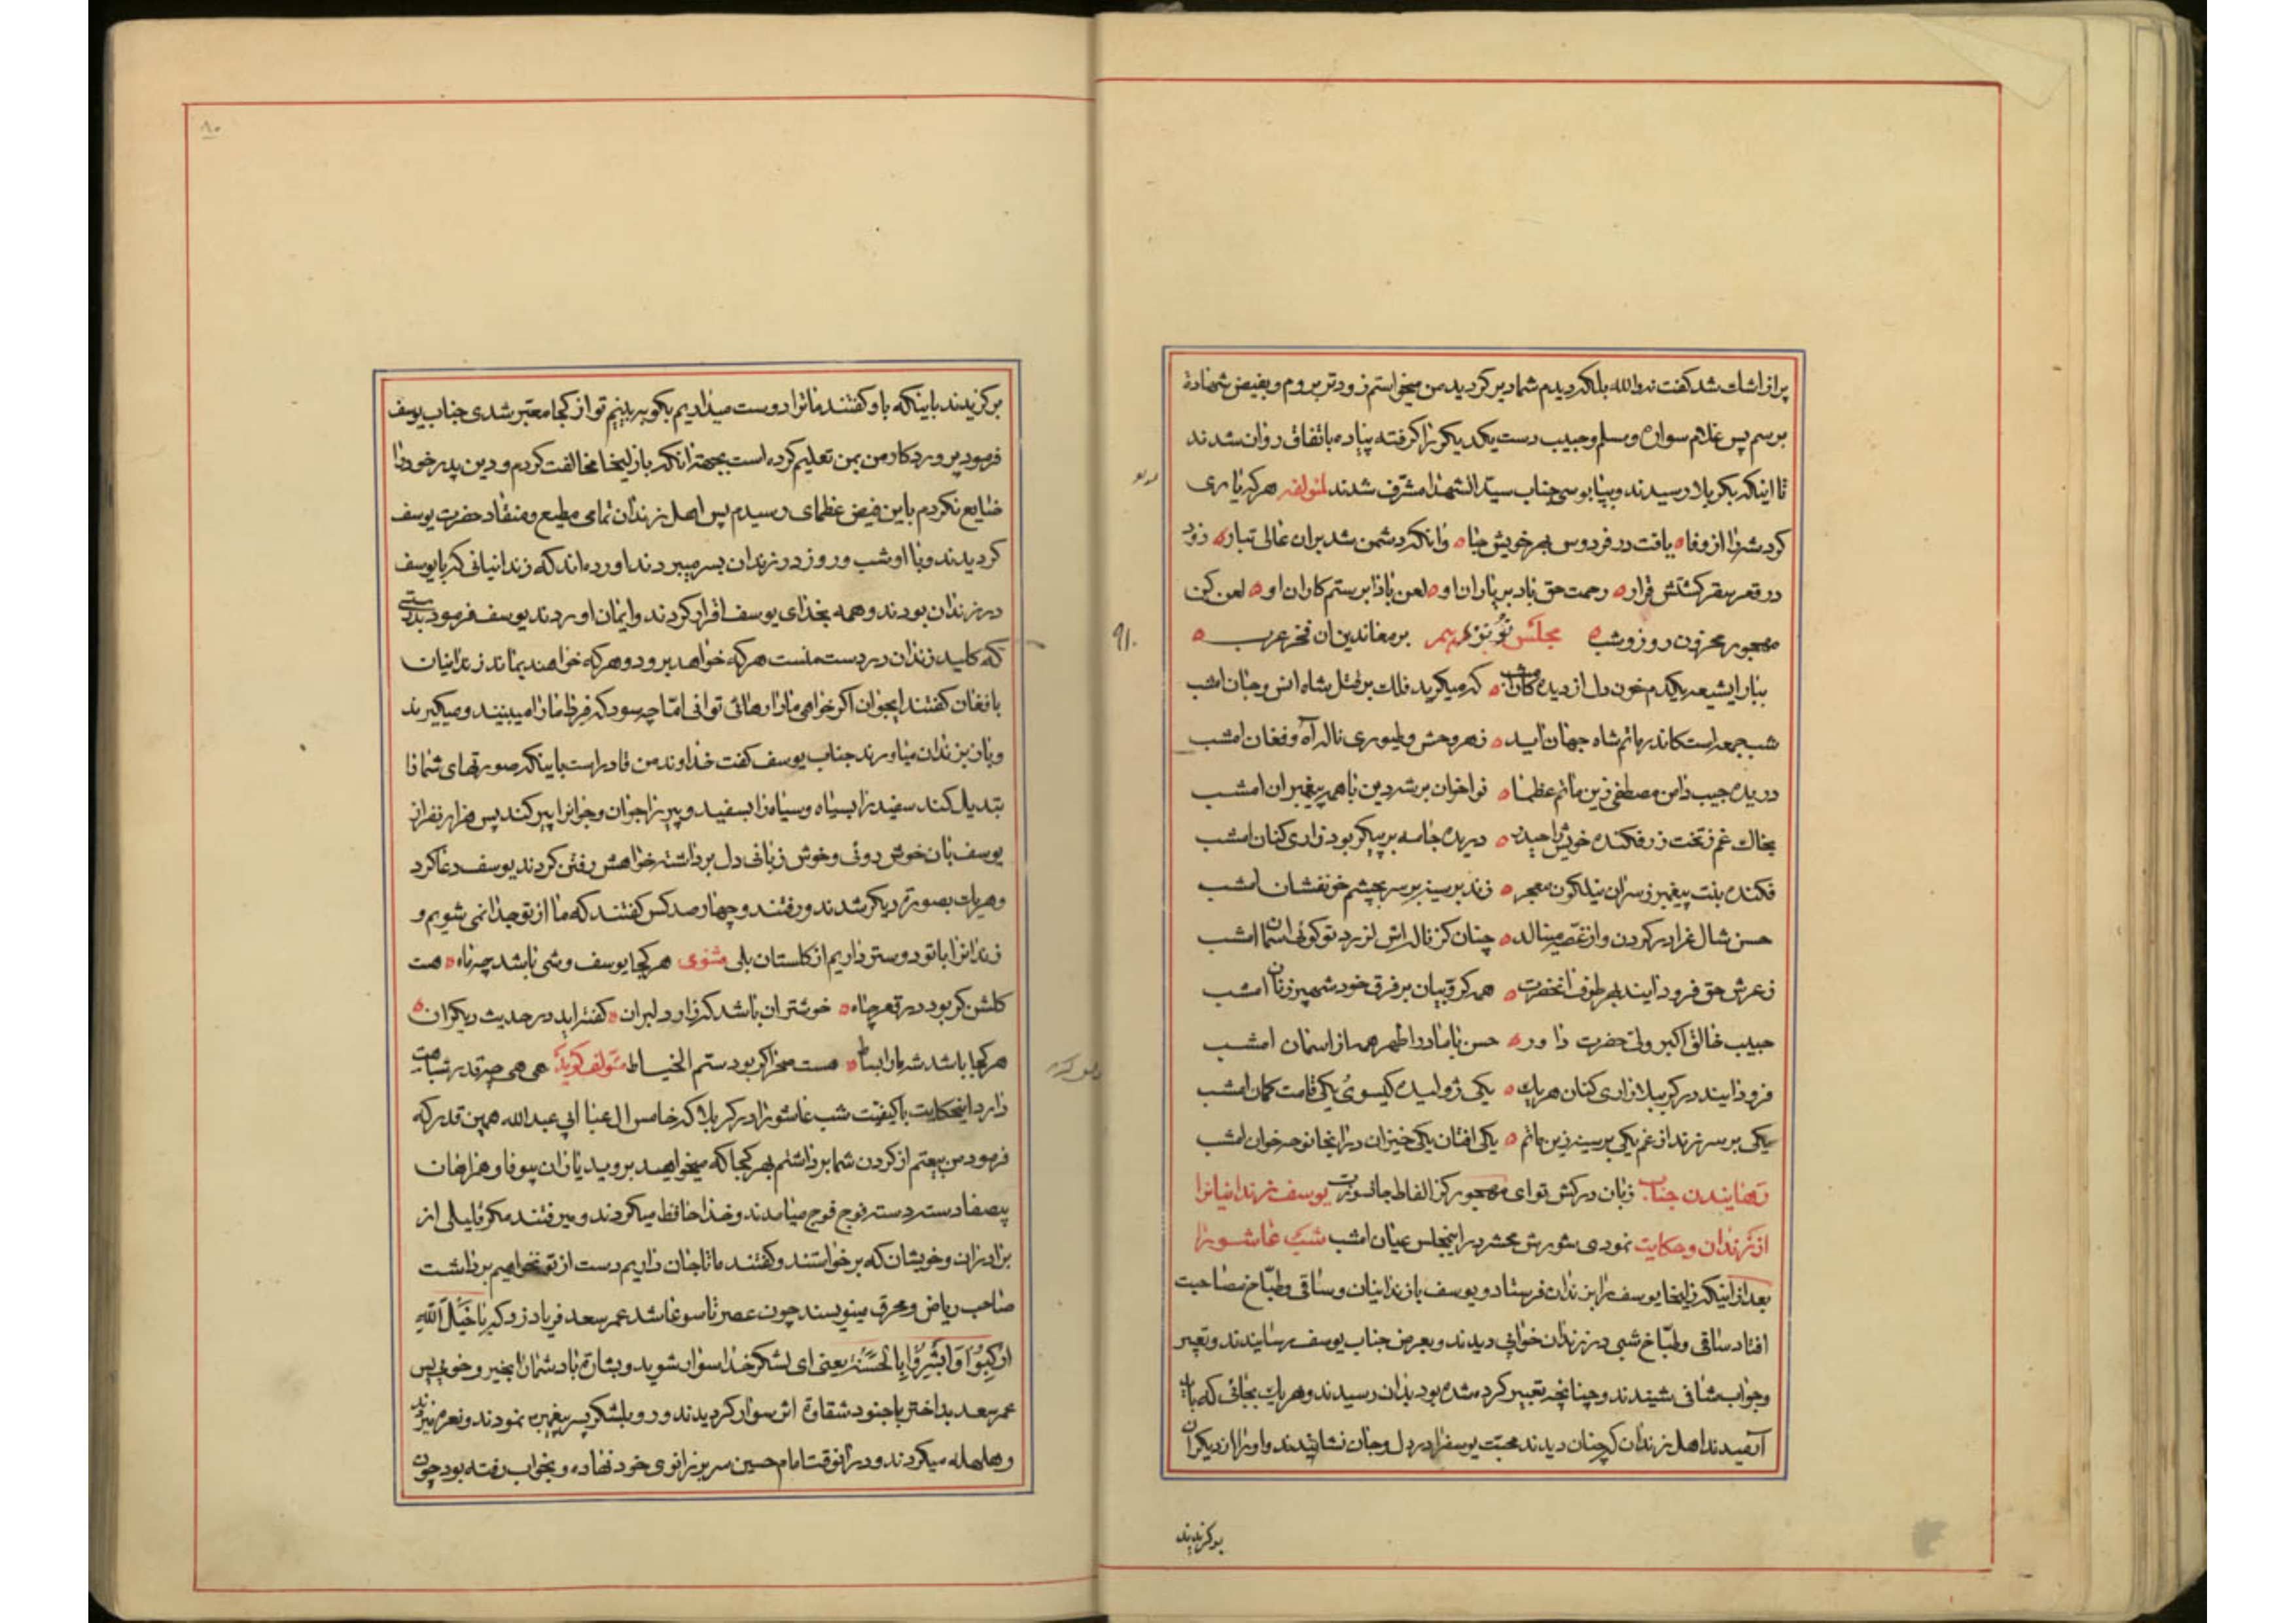 پر از اشک شد گفت نه والله بلکه دیدم شما دیر کردید من میخواستم زودتر بروم و بفیض شهادة
برسم پس غلام سواره و مسلم و حبیب دست یکدیکر را کرفته پیاده باتفاق روان شدند
تا اینکه بکربلا رسیدند و بپابوسی جناب سیّد الشهدا مشرّف شدند لمؤلفه هرکه یاری
کرد شه را از وفا ه یافت در فردوس بهر خویش جا ه وانکه دشمن شد بران عالی تبار ه زود
در قعر سقر کشتش قرار ه رحمت حق باد بر یاران او ه لعن بادا بر ستم کاران او ه لعن کن
مهجور محزون روز و شب ه مجلس نود نهم بر معاندین ان فخر عرب ه
ببار ایشیعه یکدم خون دل از دیده کان امشب ه که میکرید فلک بر قتل شاه انس و جان امشب
شب جمعه است کاندر ماتم شاه جهان اید ه ز هر وحش و طیوری ناله آه و فغان امشب
دریده جیب دامن مصطفی زین ماتم عظما ه نواخوان بر شه دین با همه پیغمبران امشب
بخاک غم ز تخت زر فکنده خویش را حیدر ه دریده جامه بر پیکر بود زاری کنان امشب
فکنده بنت پیغمبر ز سر ان نیلکون معجر ه زند بر سینه بر سر بچشم خونفشان امشب
حسن شال عزا در کردن و از غصه مینالد ه چنان کز ناله اش لرزد تو کوئی اسمان امشب
ز عرش حق فرود ایند بهر طوف انحضرت ه همه کروبیان بر فرق خود شهپر زنان امشب
حبیب خالق اکبر ولی حضرت داور ه حسن با مادر اطهر همه از اسمان امشب
فرود ایند در کربلا زاری کنان هر یک ه یکی ژولیده کیسو یکی قامت کمان امشب
یکی بر سر زند از غم یکی بر سینه زین ماتم ه یکی افتان یکی خیزان در انجا نوحه خوان امشب
رهایندن جناب زبان درکش تو ای مهجور کز الفاظ جانسوزت یوسف زندانیانرا
از زندان و حکایت نمودی شورش محشر در اینمجلس عیان امشب شب عاشورا
بعد از اینکه زلیخا یوسف را بزندان فرستاد و یوسف با زندانیان و ساقی و طبّاخ مصاحبت
افتاد ساقی و طبّاخ شبی در زندان خوابی دیدند و بعرض جناب یوسف رسانیدند و تعبیر
و جواب شافی شنیدند و چنانچه تعبیر کرده شده بود بدان رسیدند و هر یک بجائی که باید
آرمیدند اهل زندان که چنان دیدند محبت یوسفرا در دل و جان نشانیدند و او را از دیکران
برکزیدند
۹۱
۸۰
برکزیدند باینکه باو کفتند ما ترا دوست میداریم بکو به بینیم تو از کجا معتبر شدی جناب یوسف
فرمود پروردکار من بمن تعلیم کرده است بجهة انکه با زلیخا مخالفت کردم و دین پدر خود را
ضایع نکردم باین فیض عظمای رسیدم پس اهل زندان تمامی مطیع و منقاد حضرت یوسف
کردیدند و با او شب و روز در زندان بسر میبردند اورده اند که زندانیانی که با یوسف
در زندان بودند و همه بخدای یوسف اقرار کردند و ایمان اوردند یوسف فرمود بدرستی
که کلید زندان در دست منست هر که خواهد برود و هر که خواهد بماند زندانیان
با فغان کفتند ایجوان اکر خواهی ما را رهائی توانی امّا چه سود که فردا ما را میبینند و میکیرند
و بان بزندان میاورند جناب یوسف کفت خداوند من قادر است باینکه صورتهای شما را
تبدیل کند سفید را بسیاه و سیاه را بسفید و پیر را جوان و جوانرا پیر کند پس هزار نفر از
یوسف بان خوش روئی و خوش زبانی دل برداشته خواهش رفتن کردند یوسف دعا کرد
و هر یک بصورة دیکر شدند و رفتند و چهار صد کس کفتند که ما از تو جدا نمی شویم و
زندانرا با تو دوستر داریم از کلستان بلی مثنوی هر کجا یوسف وشی باشد چه ماه ه هست
کلشن کر بود در قعر چاه ه خوشتر ان باشد که راز دلبران ه کفته اید در حدیث دیکران ه
هر کجا باشد شه ما را بساط ه هست صحرا کر بود ستم الخیاط مؤلف کوید هی هی چقدر شباهت
دارد اینحکایت با کیفیت شب عاشورا در کربلا که خامس ال عبا ابی عبدالله همین قدر که
فرمود من بیعتم از کردن شما برداشتم بهر کجا که میخواهید بروید یاران بیوفا و همراهان
بیصفا دسته دسته فوج فوج میامدند و خدا حافظ میکردند و میرفتند مکر قلیلی از
برادران و خویشان که برخواستند و کفتند ما تا جان داریم دست از تو نخواهیم برداشت
صاحب ریاض و محرق مینویسند چون عصر تاسوعا شد عمر سعد فریاد زد که یا خَیلَ اللهِ
ارْکَبُوا وَ ابْشِرُوا بِالْحَسَنَة یعنی ای لشکر خدا سوار شوید و بشارة باد شما را بخیر و خوبی پس
عمر سعد بد اختر با جنود شقاوة اثر سوار کردیدند و رو بلشکر پسر پیغمبر نمودند و نعره میزدند
و هلهله میکردند و در انوقت امام حسین سر بر زانوی خود نهاده و بخواب رفته بود چون